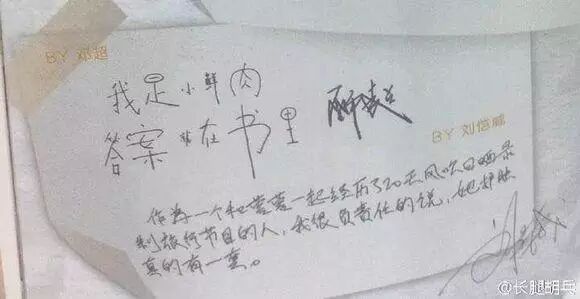 BY 邓超
我是小鲜肉
答案就在书里
BY 刘恺威
作为一个和蒙蒙一起经历了20天风吹日晒录
制旅行节目的人，我很负责任的说，她
真的有一套。
@长腿胡兵